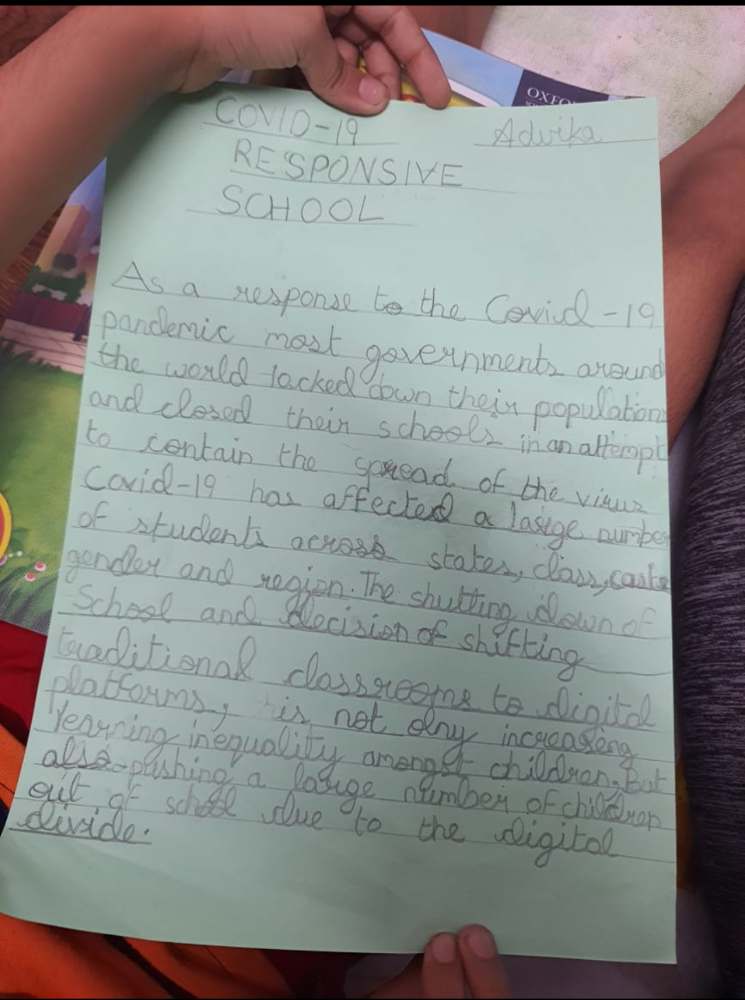 OXFO
COVID-19
Advika
RESPONSIVE
SCHOOL
As a response to the Covid-19
pandemic most governments around
the world locked down their population
and closed their schools in an attempt
to contain the spread of the virus
Covid-19 has affected a large number
of students across states, class, caste
gender and region. The shutting down of
School and decision of shifting
traditional classrooms to digital
platforms, is not olny increaseng
learning inequality amongst children, But
also pushing a large number of children
out of school due to the digital
divide.